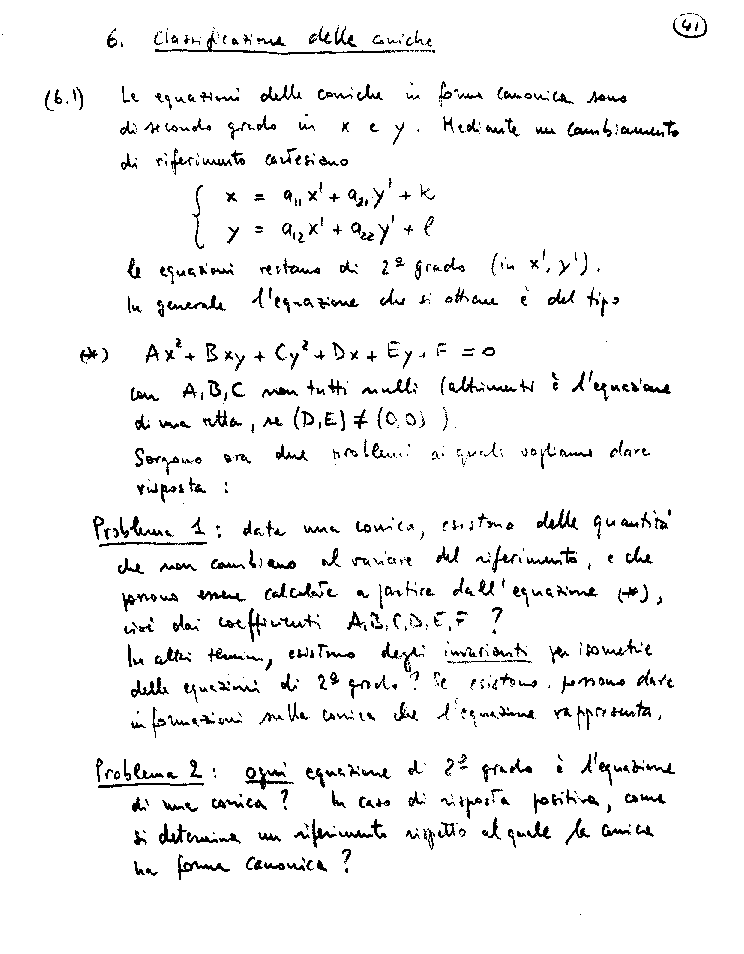 41
6. Classificazione delle coniche
(6.1) Le equazioni delle coniche in forma canonica sono
di secondo grado in x e y. Mediante un cambiamento
di riferimento cartesiano
{ x = a₁₁x' + a₂₁y' + k
y = a₁₂x' + a₂₂y' + l
le equazioni restano di 2º grado (in x', y').
In generale l'equazione che si ottiene è del tipo
(*) Ax² + Bxy + Cy² + Dx + Ey + F = 0
con A,B,C non tutti nulli (altrimenti è l'equazione
di una retta, se (D,E) ≠ (0,0) ).
Sorgono ora due problemi ai quali vogliamo dare
risposta :
Problema 1 : data una conica, esistono delle quantità
che non cambiano al variare del riferimento, e che
possono essere calcolate a partire dall'equazione (*),
cioè dai coefficienti A,B,C,D,E,F ?
In altri termini, esistono degli invarianti per isometrie
delle equazioni di 2º grado? Se esistono, possono dare
informazioni sulla conica che l'equazione rappresenta.
Problema 2 : ogni equazione di 2º grado è l'equazione
di una conica ? In caso di risposta positiva, come
si determina un riferimento rispetto al quale la conica
ha forma canonica ?